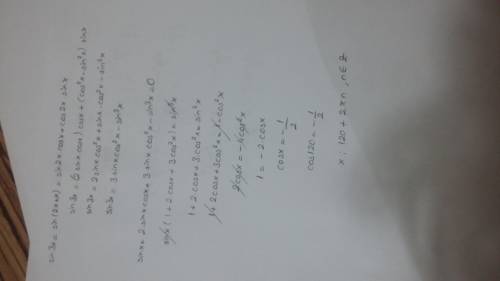 sin3x = sin(2x+x) = sin2x cosx + cos2x sinx
sin3x = (2 sinx cosx) cosx + (cos²x - sin²x) sinx
sin3x = 2sinx cos²x + sinx · cos²x - sin³x
sin3x = 3 sinx cos²x - sin³x
sinx + 2 sinx cosx + 3 sinx cos²x - sin³x = 0
sinx (1 + 2 cosx + 3 cos²x) = sin³x
1 + 2 cosx + 3 cos²x = sin²x
1 + 2 cosx + 3cos²x = 1 - cos²x
2cosx = -4cos²x
1 = -2 cosx
cosx = -1/2
cos120 = -1/2
x = 120 + 2πn, n∈Z